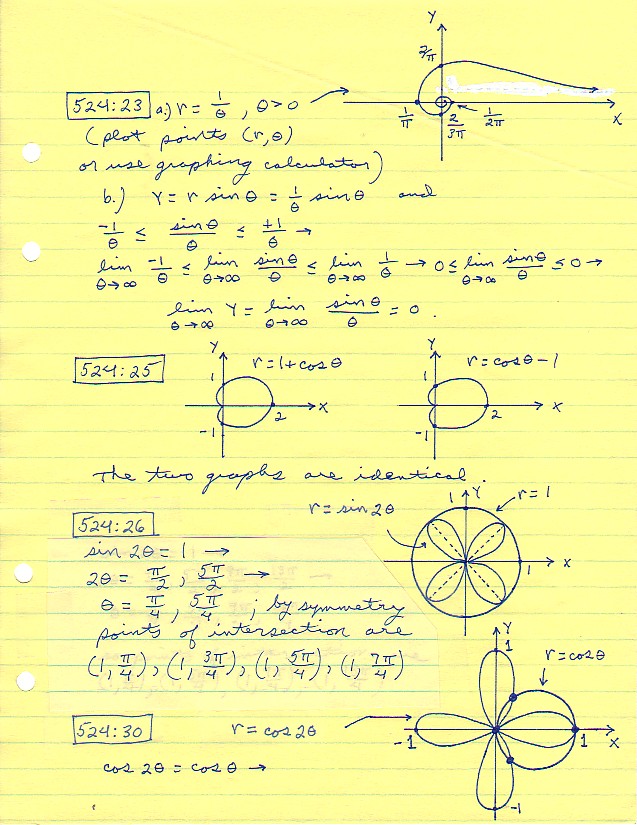 Y
2/π
524:23 a.) r = 1/θ , θ > 0 →
1/π 2/3π 1/2π X
(plot points (r, θ)
or use graphing calculator)
b.) Y = r sin θ = 1/θ sin θ and
-1/θ ≤ sin θ/θ ≤ +1/θ →
lim θ→∞ -1/θ ≤ lim θ→∞ sin θ/θ ≤ lim θ→∞ 1/θ → 0 ≤ lim θ→∞ sin θ/θ ≤ 0 →
lim θ→∞ Y = lim θ→∞ sin θ/θ = 0 .
524:25 Y r = 1 + cos θ Y r = cos θ - 1
1 2 X -1 1 2 X -1
The two graphs are identical.
524:26 r = sin 2θ 1 Y r = 1
sin 2θ = 1 →
1 X
2θ = π/2 , 5π/2 →
θ = π/4 , 5π/4 ; by symmetry
points of intersection are
(1, π/4), (1, 3π/4), (1, 5π/4), (1, 7π/4)
Y 1 r = cos θ
524:30 r = cos 2θ →
-1 1 X
cos 2θ = cos θ →
-1